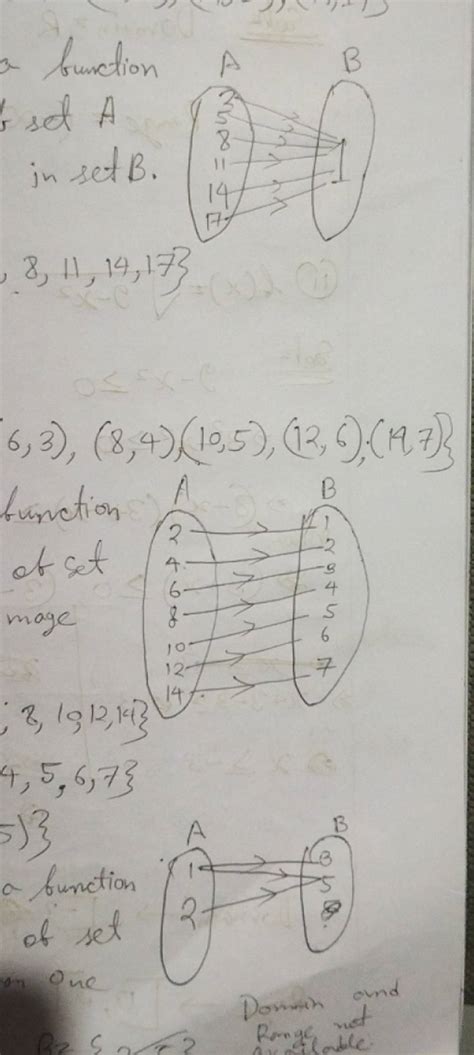 a function
A B
of set A
in set B.
2
5
8
11
14
17
1
, 8, 11, 14, 17}
6, 3), (8, 4), (10, 5), (12, 6), (14, 7)}
function
of set
mage
A B
2
4
6
8
10
12
14
1
2
3
4
5
6
7
; 8, 10, 12, 14}
4, 5, 6, 7}
5)}
a function
of set
one
A B
1
2
3
5
Domain and
Range not
Available.